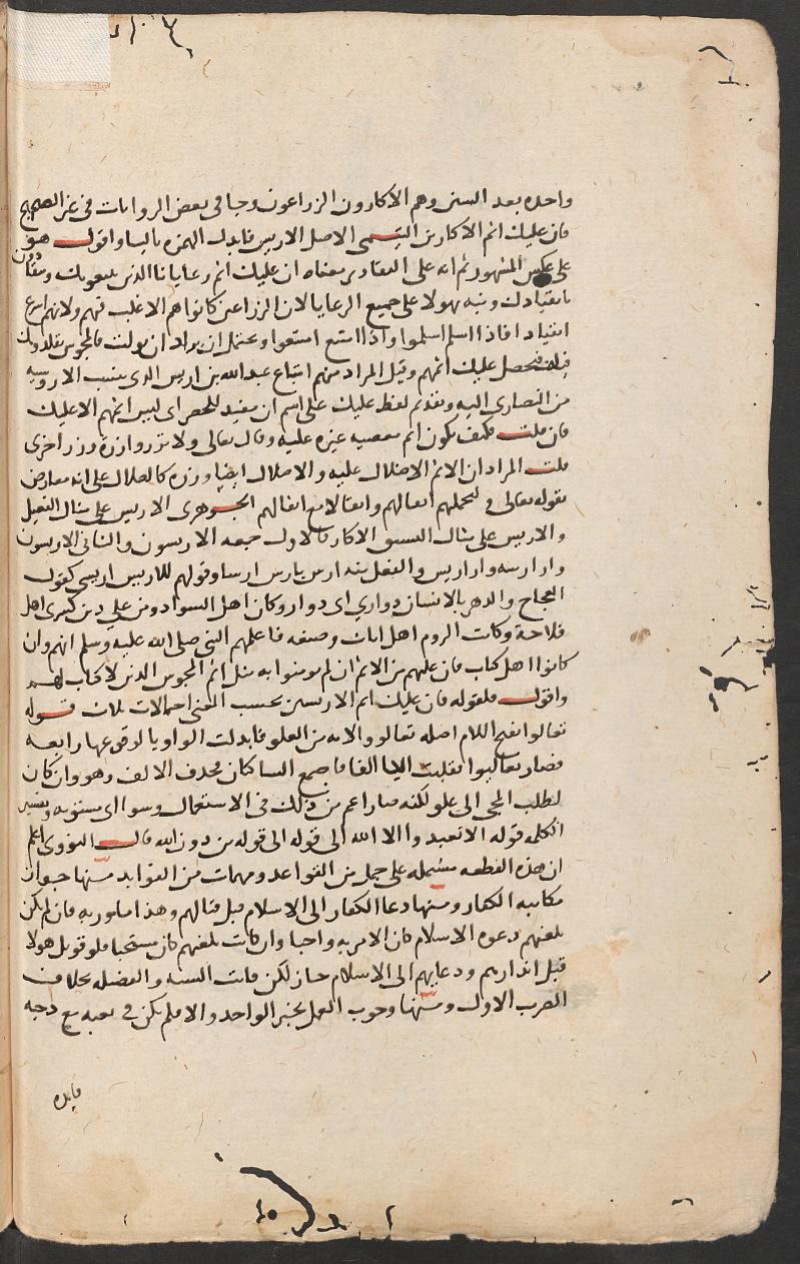 واحده بعد السين وهم الاكارون الزراعون وجا في بعض الروايات في غير الصحيح
فان عليك اثم الاكارين التيمى الاصل الاريس فابدلت الهمزه بالياء واقول هو
على عكس المشهور ثم انه على التقادير معناه ان عليك اثم رعاياك الذين يتبعونك وينقادون
بانقيادك ونبه بهولا على جميع الرعايا لان الزراعين كانوا هم الاغلب فيهم ولانهم اسرع
انقيادا فاذا اسلم اسلموا واذا امتنع امتنعوا ويحتمل ان يراد ان توليت فالمجوس يقلدونك
فيحصل عليك اثمهم وقيل المراد منهم اتباع عبدالله بن اريس الذى ينسب الاروسيه
من النصارى اليه وتقديم لفظ عليك على اسم ان مفيد للحصر اى ليس اثمهم الا عليك
فان قلت فكيف يكون اثم معصيه غيره عليه وقال تعالى ولا تزر وازرة وزر اخرى
قلت المراد ان الاثم الاضلال عليه والاضلال ايضا وزره كالضلال على انه معارض
بقوله تعالى وليحملهم اثقالهم واثقالا مع اثقالهم الجوهرى الاريس على مثال الفعيل
والاريس على مثال الفسيق الاكار فالاول جمعه الاريسون والثانى الاريسون
وارارسه واراريس والفعل منه ارس يارس ارسا وقولهم للاريس اريسى كقول
العجاج والدهر بالانسان دوارى اى دوار وكان اهل السواد ومن على دين كسرى اهل
فلاحة وكانت الروم اهل اثاث وصنعه فاعلمهم النبى صلى الله عليه وسلم انهم وان
كانوا اهل كتاب فان عليهم من الاثم ان لم يومنوا به مثل اثم المجوس الذين لا كتاب لهم
واقول فلقوله فان عليك اثم الاريسين بحسب المعنى احتمالات ثلاث قوله
تعالوا بفتح اللام اصله تعالووا لانه من العلو فابدلت الواو يا لوقوعها رابعه
فصار تعاليوا فقلبت اليا الفا فاجتمع الساكنان فحذف الالف وهو وان كان
لطلب المجى الى علو لكنه صار اعم من ذلك في الاستعمال وسوا اى مستويه وتفسير
الكلمه قوله الا نعبد الا الله الى قوله الى قوله من دون الله قال النووى اعلم
ان هذه القطعه مشتمله على جمل من القواعد ومهمات من الفوايد منها جواز
مكاتبه الكفار ومنها دعا الكفار الى الاسلام قبل قتالهم وهذا مامور به فان لم يكن
بلغهم دعوه الاسلام كان الامر به واجبا وان كانت بلغتهم كان مستحبا فلو قوتل هولا
قبل انذارهم ودعايهم الى الاسلام جاز لكن فاتت السنه والفضيله بخلاف
الضرب الاول ومنها وجوب العمل بخبر الواحد والا فلم يكن في بعثه مع دحيه
فايده